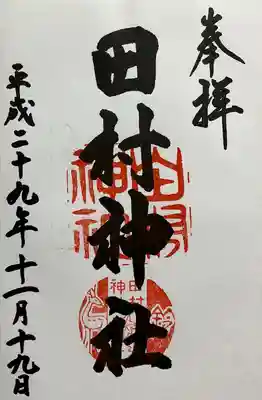 奉拝
田村神社
平成二十九年十一月十九日
田村神社